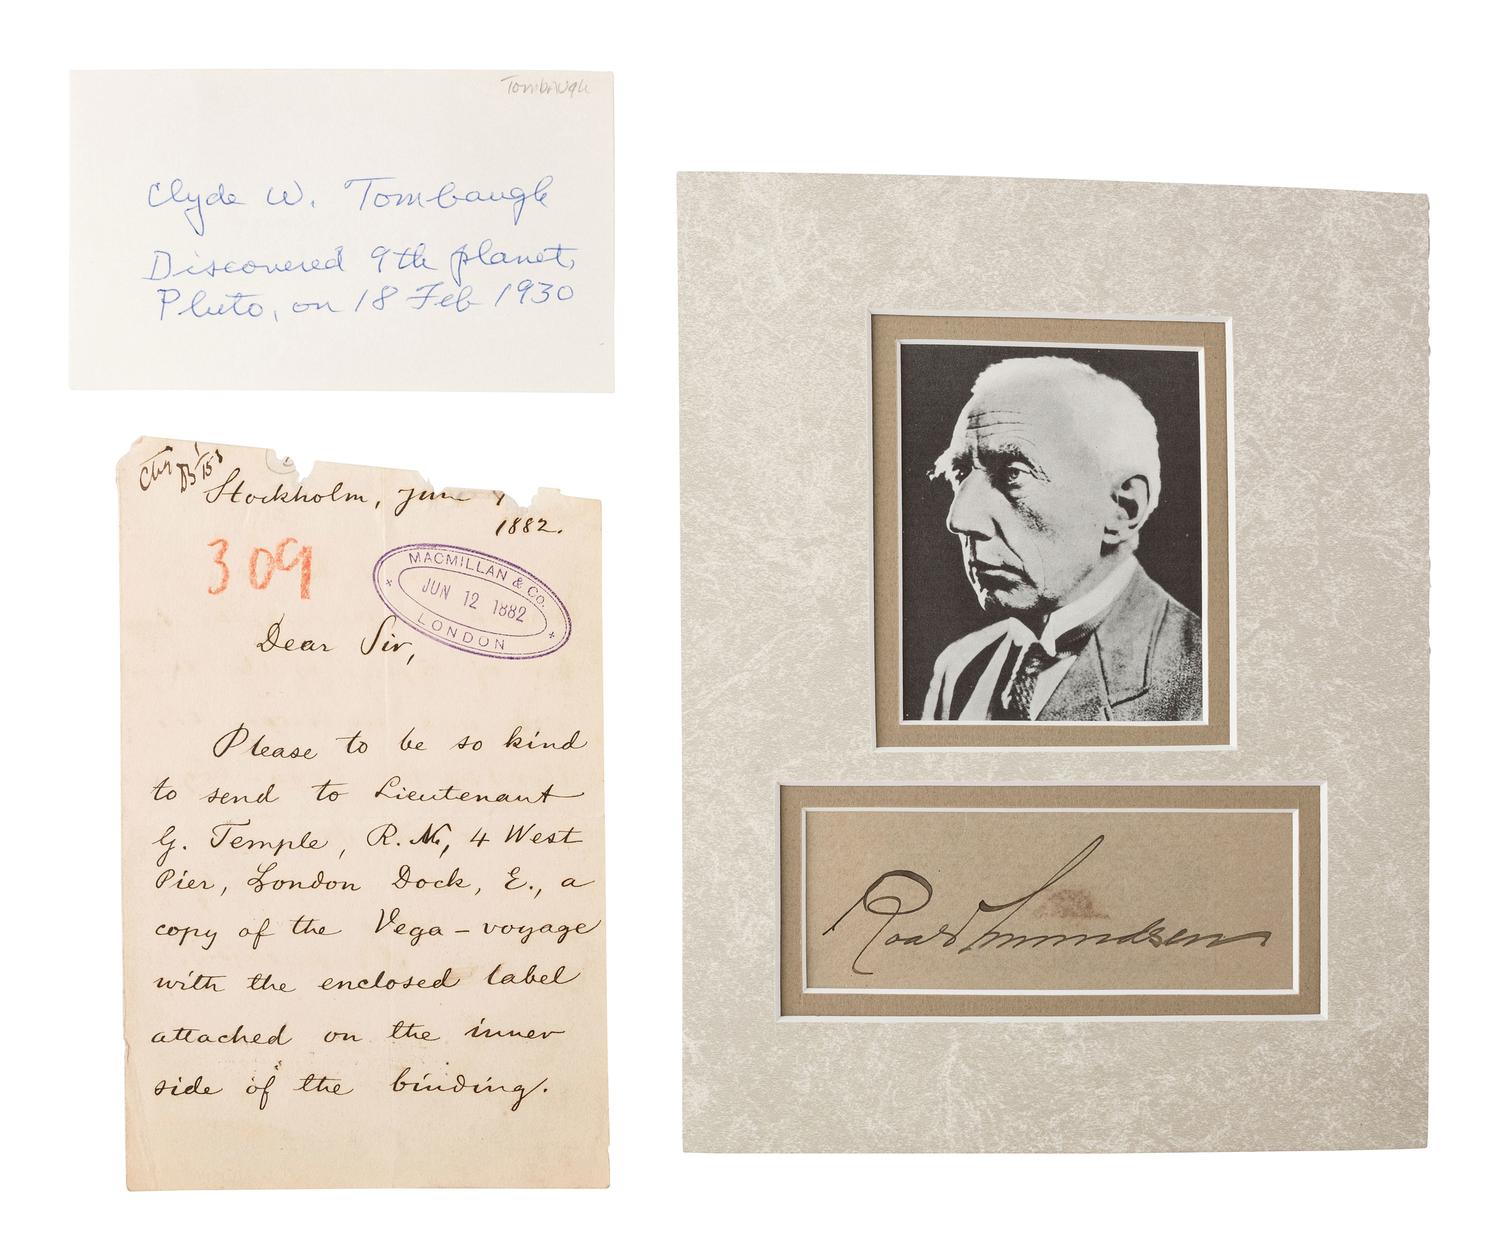 Tombaugh
Clyde W. Tombaugh
Discovered 9th planet,
Pluto, on 18 Feb 1930
Stockholm, June
1882.
309
MACMILLAN & CO.
JUN 12 1882
LONDON
Dear Sir,
Please to be so kind
to send to Lieutenant
G. Temple, R.N., 4 West
Pier, London Dock, E., a
copy of the Vega-voyage
with the enclosed label
attached on the inner
side of the binding.
Roald Amundsen